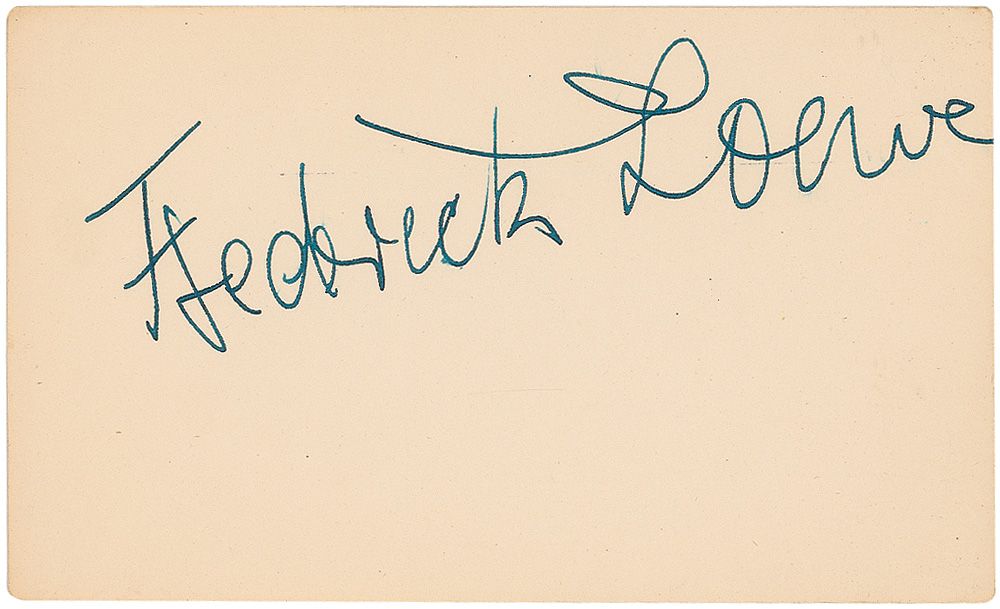 Frederick Loewe